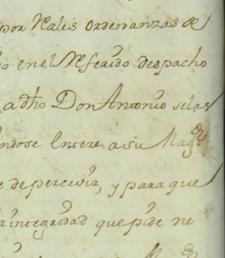 por Rales ordenanzas de
en el Referido despacho
a dho Don Antonio se las
a su Mag.
de percivir, y para que
integridad que pide